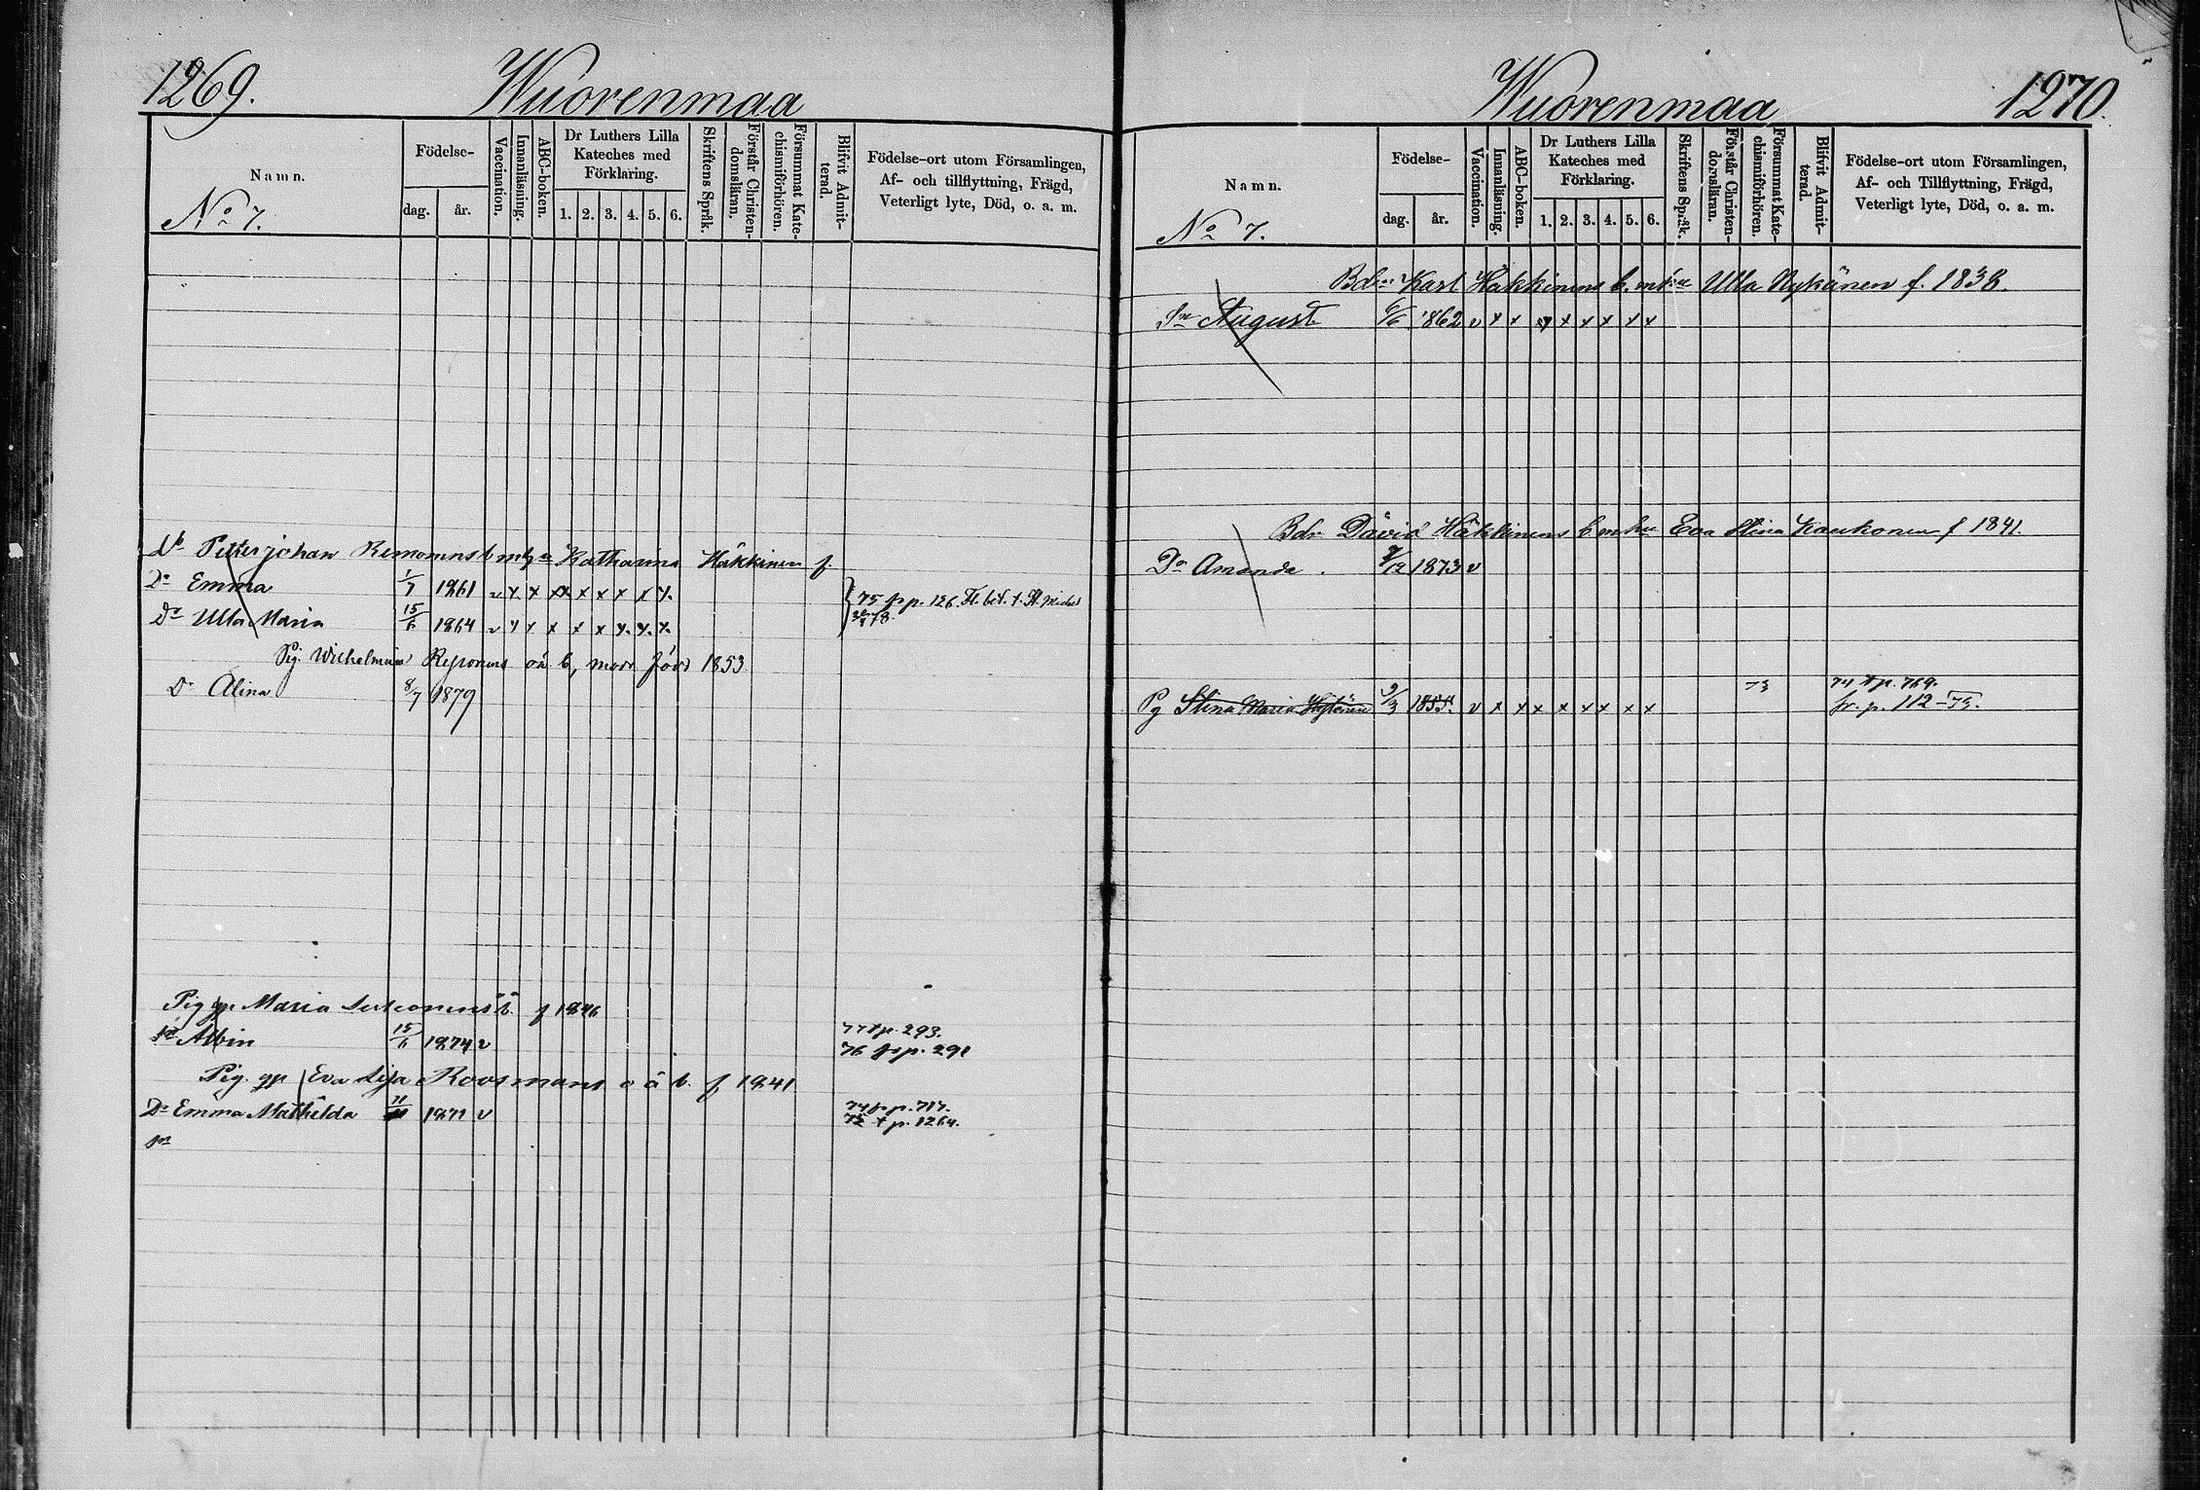 1269.
Wuorenmaa
Namn.
Födelse-
dag.
år.
Vaccination.
Innanläsning.
ABC-boken.
Dr Luthers Lilla
Kateches med
Förklaring.
1. 2. 3. 4. 5. 6.
Skriftens Språk.
Förstår Christen-
domsläran.
Försummat Kate-
chismiförhören.
Blifvit Admit-
terad.
Födelse-ort utom Församlingen,
Af- och tillflyttning, Frägd,
Veterligt lyte, Död, o. a. m.
No 7.
Petter Johan Katharina Häkkinen f.
Dr Emma 1/7 1861 v x x x x x x x x x
75 p. 126. Fl. bet. t. St. Michel
Dr Ulla Maria 15/6 1864 v x x x x x x x x
78.
Pig. Wilhelmina oä b, mor född 1853
Dr Alina 8/7 1879
Pig Maria f 1846
Sn Albin 15/6 1874 v
77 t p. 293.
76 fr p. 291
Pig. Eva Lisa Roosmans o ä b. f 1841
Dr Emma Mathilda 1871 v
74 p. 717.
t p. 1264.
Sn
Wuorenmaa
1270.
Namn.
Födelse-
dag.
år.
Vaccination.
Innanläsning.
ABC-boken.
Dr Luthers Lilla
Kateches med
Förklaring.
1. 2. 3. 4. 5. 6.
Skriftens Språk.
Förstår Christen-
domsläran.
Försummat Kate-
chismiförhören.
Blifvit Admit-
terad.
Födelse-ort utom Församlingen,
Af- och Tillflyttning, Frägd,
Veterligt lyte, Död, o. a. m.
No 7.
Bdn Karl Häkkinens b. m hu Ulla Nykänen f. 1836.
Sn August 6/6 1862 v x x x x x x x x
Bdr David Häkkinens b m hu Eva Stina Kaukonen f 1841.
Dr Amanda. 1873 v
Pg Stina Maria 9/3 v x x x x x x x x
73
74 t p. 769.
fr. p. 112 - 73.